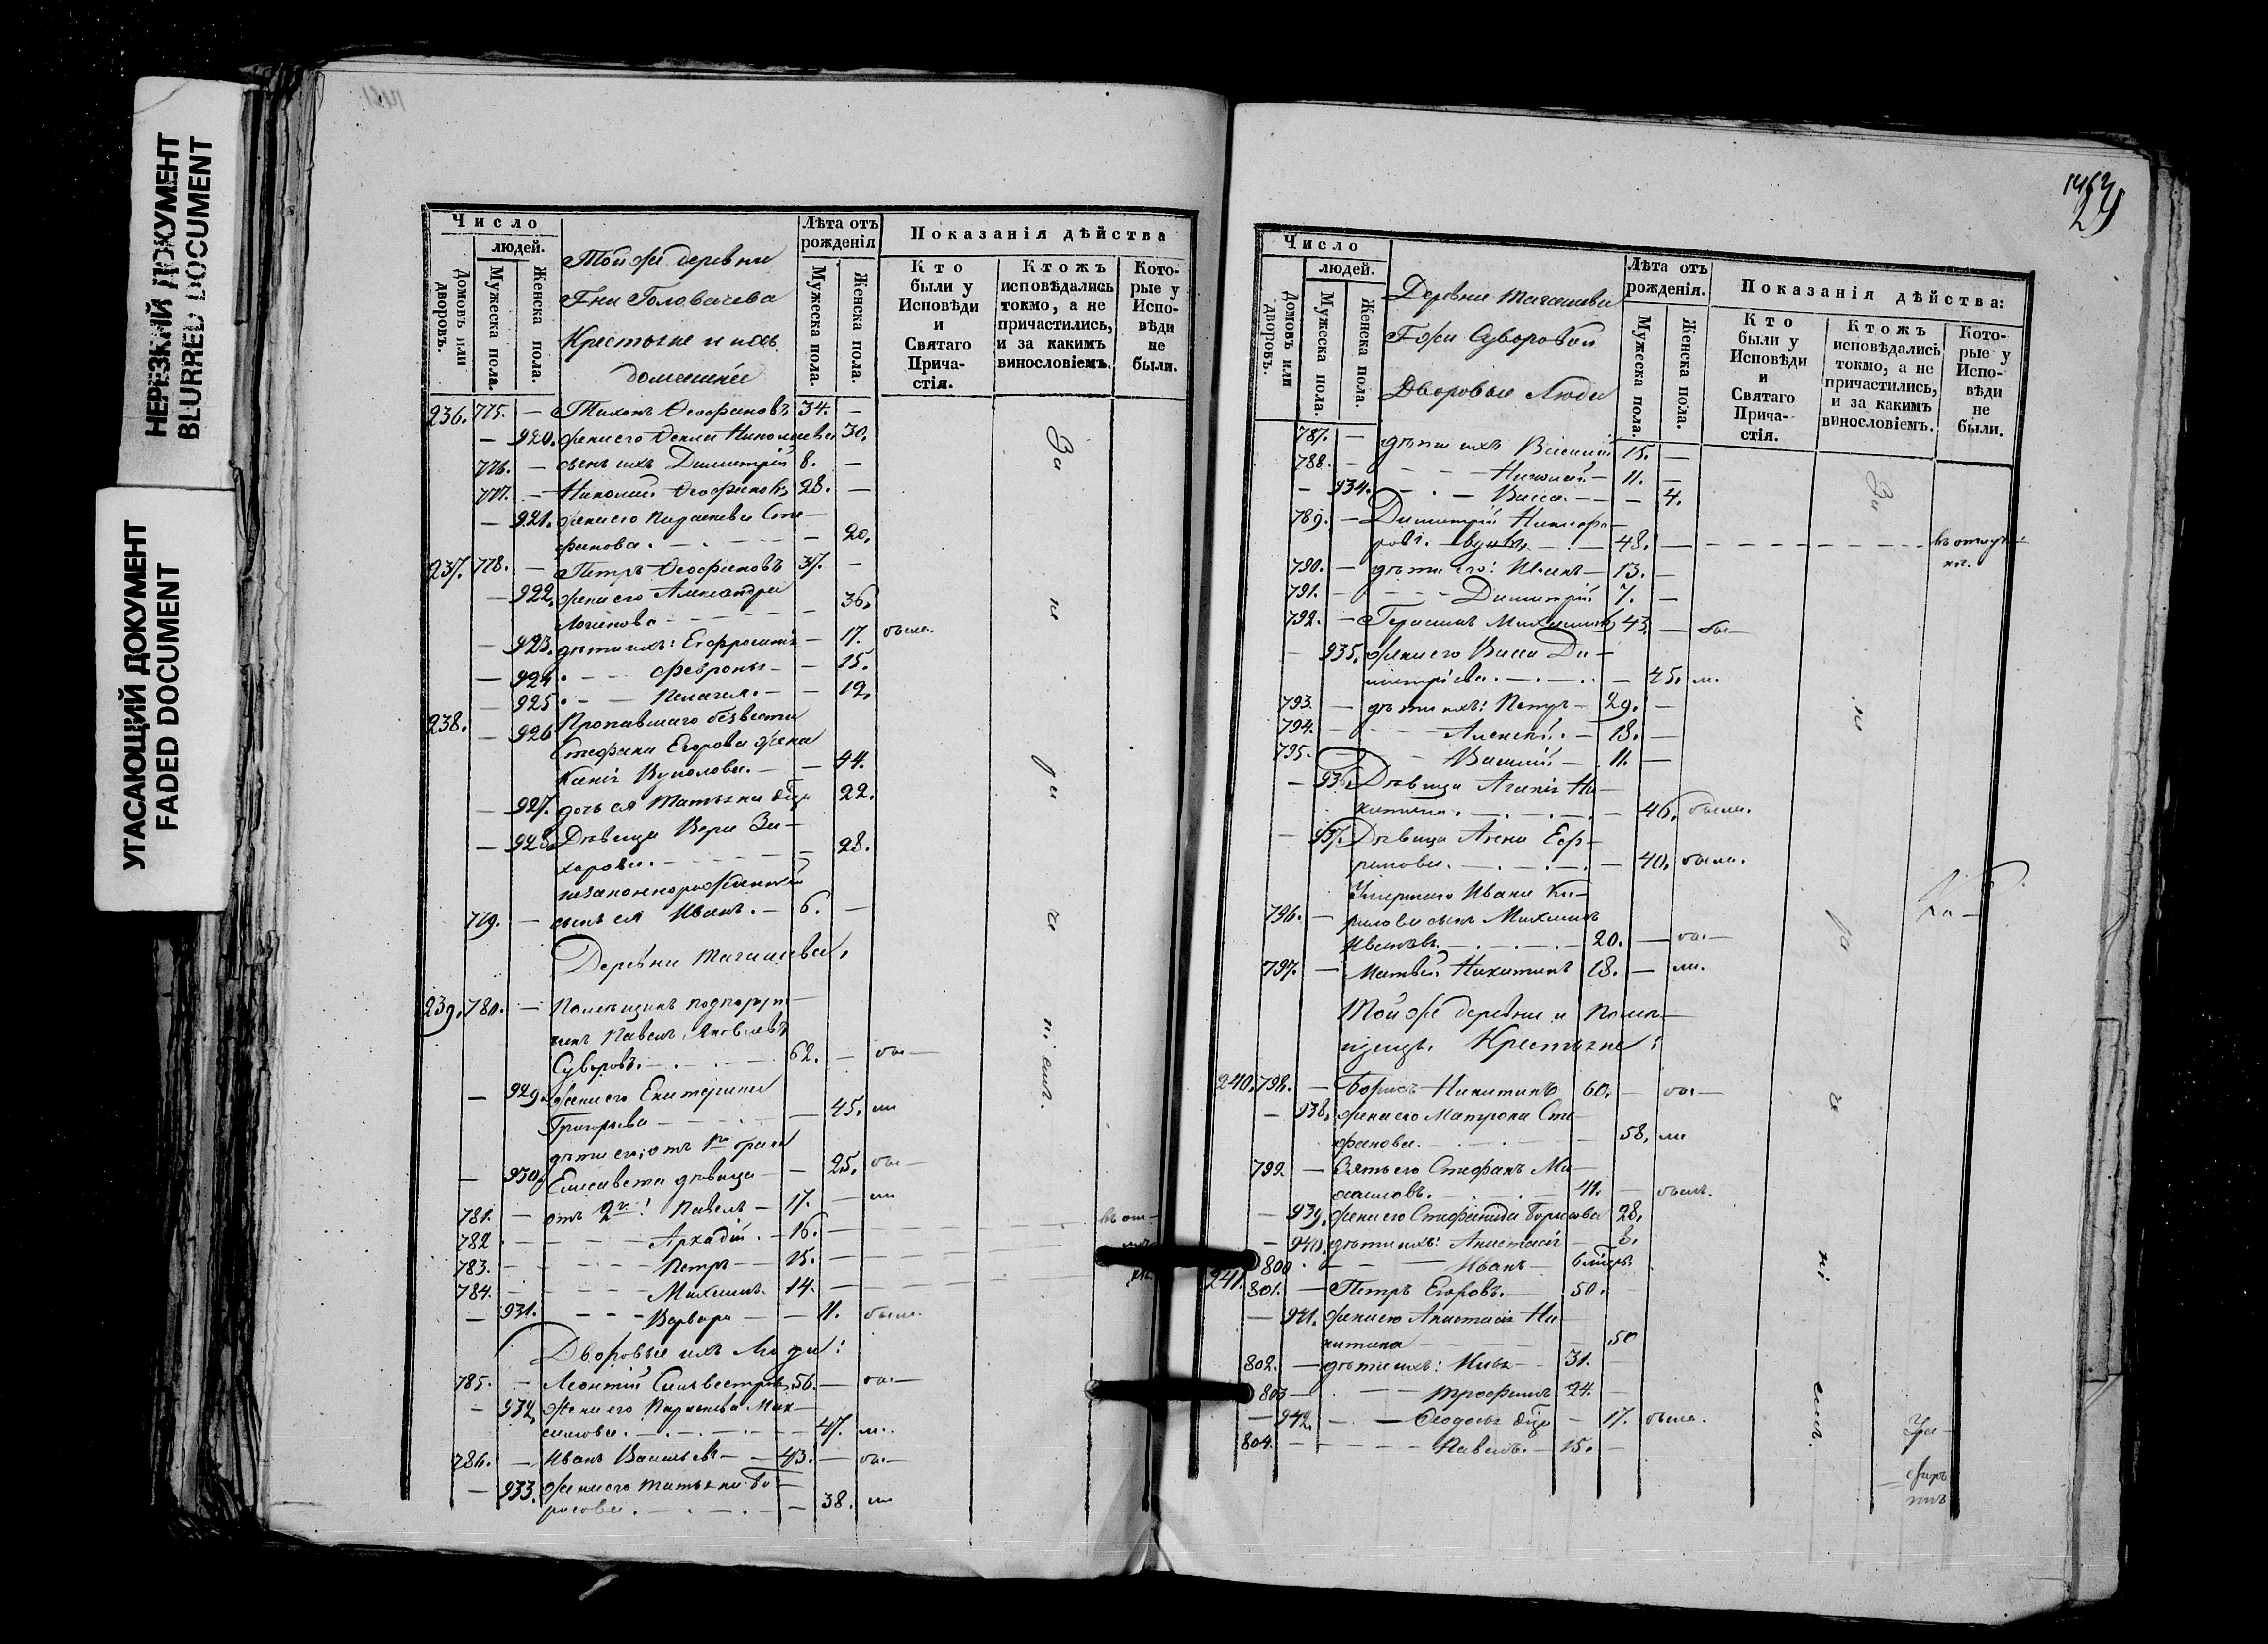 НЕРЕЗКИЙ ДОКУМЕНТ
BLURRED DOCUMENT
УГАСАЮЩИЙ ДОКУМЕНТ
FADED DOCUMENT
Число
людей.
Домовъ или дворовъ.
Мужеска пола.
Женска пола.
Той же деревни
Гна Головачева
Крестьяне и ихъ
домашніе
Лѣта отъ рожденія
Мужеска пола.
Женска пола.
Показанія дѣйства
Кто были у Исповѣди и Святаго Прича-стія.
Ктожъ исповѣдались токмо, а не причастились, и за какимъ винословіемъ.
Кото-рые у Испо-вѣди не были.
236. 775. — Тихонъ Ѳеофановъ 34. —
— 920. жена его Ѳекла Николаева 30.
776. — сынъ ихъ Димитрій 8. —
777. — Николай Ѳеофановъ 28. —
— 921. жена его Параскева Сте-
фанова. — 20.
237. 778. — Петръ Ѳеофановъ 37. —
— 922. жена его Александра
Логинова — 36.
— 923. дѣти ихъ: Евфросинія — 17. была.
— 924. Февронья — 15.
— 925. Пелагея. — 12.
238. — 926. Пропавшаго безвести
Стефана Егорова жена
Ксенія Вуколова. — 44.
— 927. дочь ея Татьяна дѣвица 22.
— 928. Дѣвица Вера За-
харова. — 28.
незаконнорожденный
779. — сынъ ея Иванъ. — 6. —
Деревни Тагашева.
239. 780. — Помѣщикъ подпоручи-
никъ Павелъ Яковлевъ
Суворовъ. 62. — бы—
— 929. жена его Екатерина
Григорьева — 45. ли
дѣти его, отъ 1го брака
— 930. Елисавета дѣвица — 25. бы—
781. — отъ 2го: Павелъ — 17. — ли
782. Аркадій. — 16. —
783. Петръ — 15. —
784. Михаилъ. 14. —
— 931. Варвара — 11. была.
Дворовые ихъ люди:
785. — Леонтій Сильвестровъ 56. — бы—
— 932. жена его Параскева Мак-
симова. — 47. ли.
786. — Иванъ Васильевъ — 43. — бы—
— 933. жена его Татьяна Бо-
рисова. — 38. ли
За
ма
ра
ні емъ.
Число
людей.
Домовъ или дворовъ.
Мужеска пола.
Женска пола.
Деревни Тагашева
Гжи Суворовой
Дворовые Люди
Лѣта отъ рожденія.
Мужеска пола.
Женска пола.
Показанія дѣйства:
Кто были у Исповѣди и Святаго Прича-стія.
Ктожъ исповѣдались токмо, а не причастились, и за какимъ винословіемъ.
Кото-рые у Испо-вѣди не были.
787. — дѣти ихъ Василій 15. —
788. — Николай — 11. —
— 934. Васса. — 4.
789. — Димитрій Никифо-
ровъ. вдовъ — 48. — въ отлуч-
кѣ.
790. — дѣти его: Иванъ — 13. —
791. — Димитрій 7. —
792. — Герасимъ Михайловъ 43. — бы—
— 935. жена его Васса Ди-
митріева. — 45. ли.
793. — дѣти ихъ: Петръ — 29. —
794. — Алексѣй. — 18. —
795. — Василій — 11. —
— 936. Дѣвица Агапія Ни-
китина. — 46. была.
— 937. Дѣвица Анна Еф-
ремова. — 40. была.
Умершаго Ивана Ки-
796. — рилова сынъ Михаилъ
Ивановъ. — 20. — бы—
797. — Матвей Никитинъ 18. — ли.
Той же деревни и помѣ-
щицы. Крестьяне:
240. 798. — Борисъ Никитинъ 60. — бы—
— 938. жена его Матрона Сте-
фанова. — 58. ли
799. — Зять его Стефанъ Ми-
хаиловъ. — 41. — былъ.
— 939. жена его Стефанида Борисова 28.
— 940. дѣти ихъ: Анастасія — 8.
800. Иванъ — 6 мѣсяцъ
241. 801. — Петръ Егоровъ. — 50. —
— 941. жена его Анастасія Ни-
китина — 50
802. — дѣти ихъ: — 31. —
803 — Трофимъ 24. —
— 942. — Ѳеодосья дѣвица — 17. была.
804. — Павелъ. — 15. —